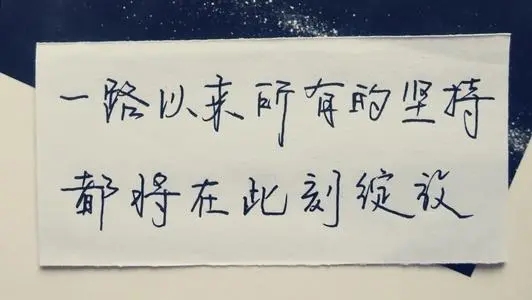 一路以来所有的坚持
都将在此刻绽放